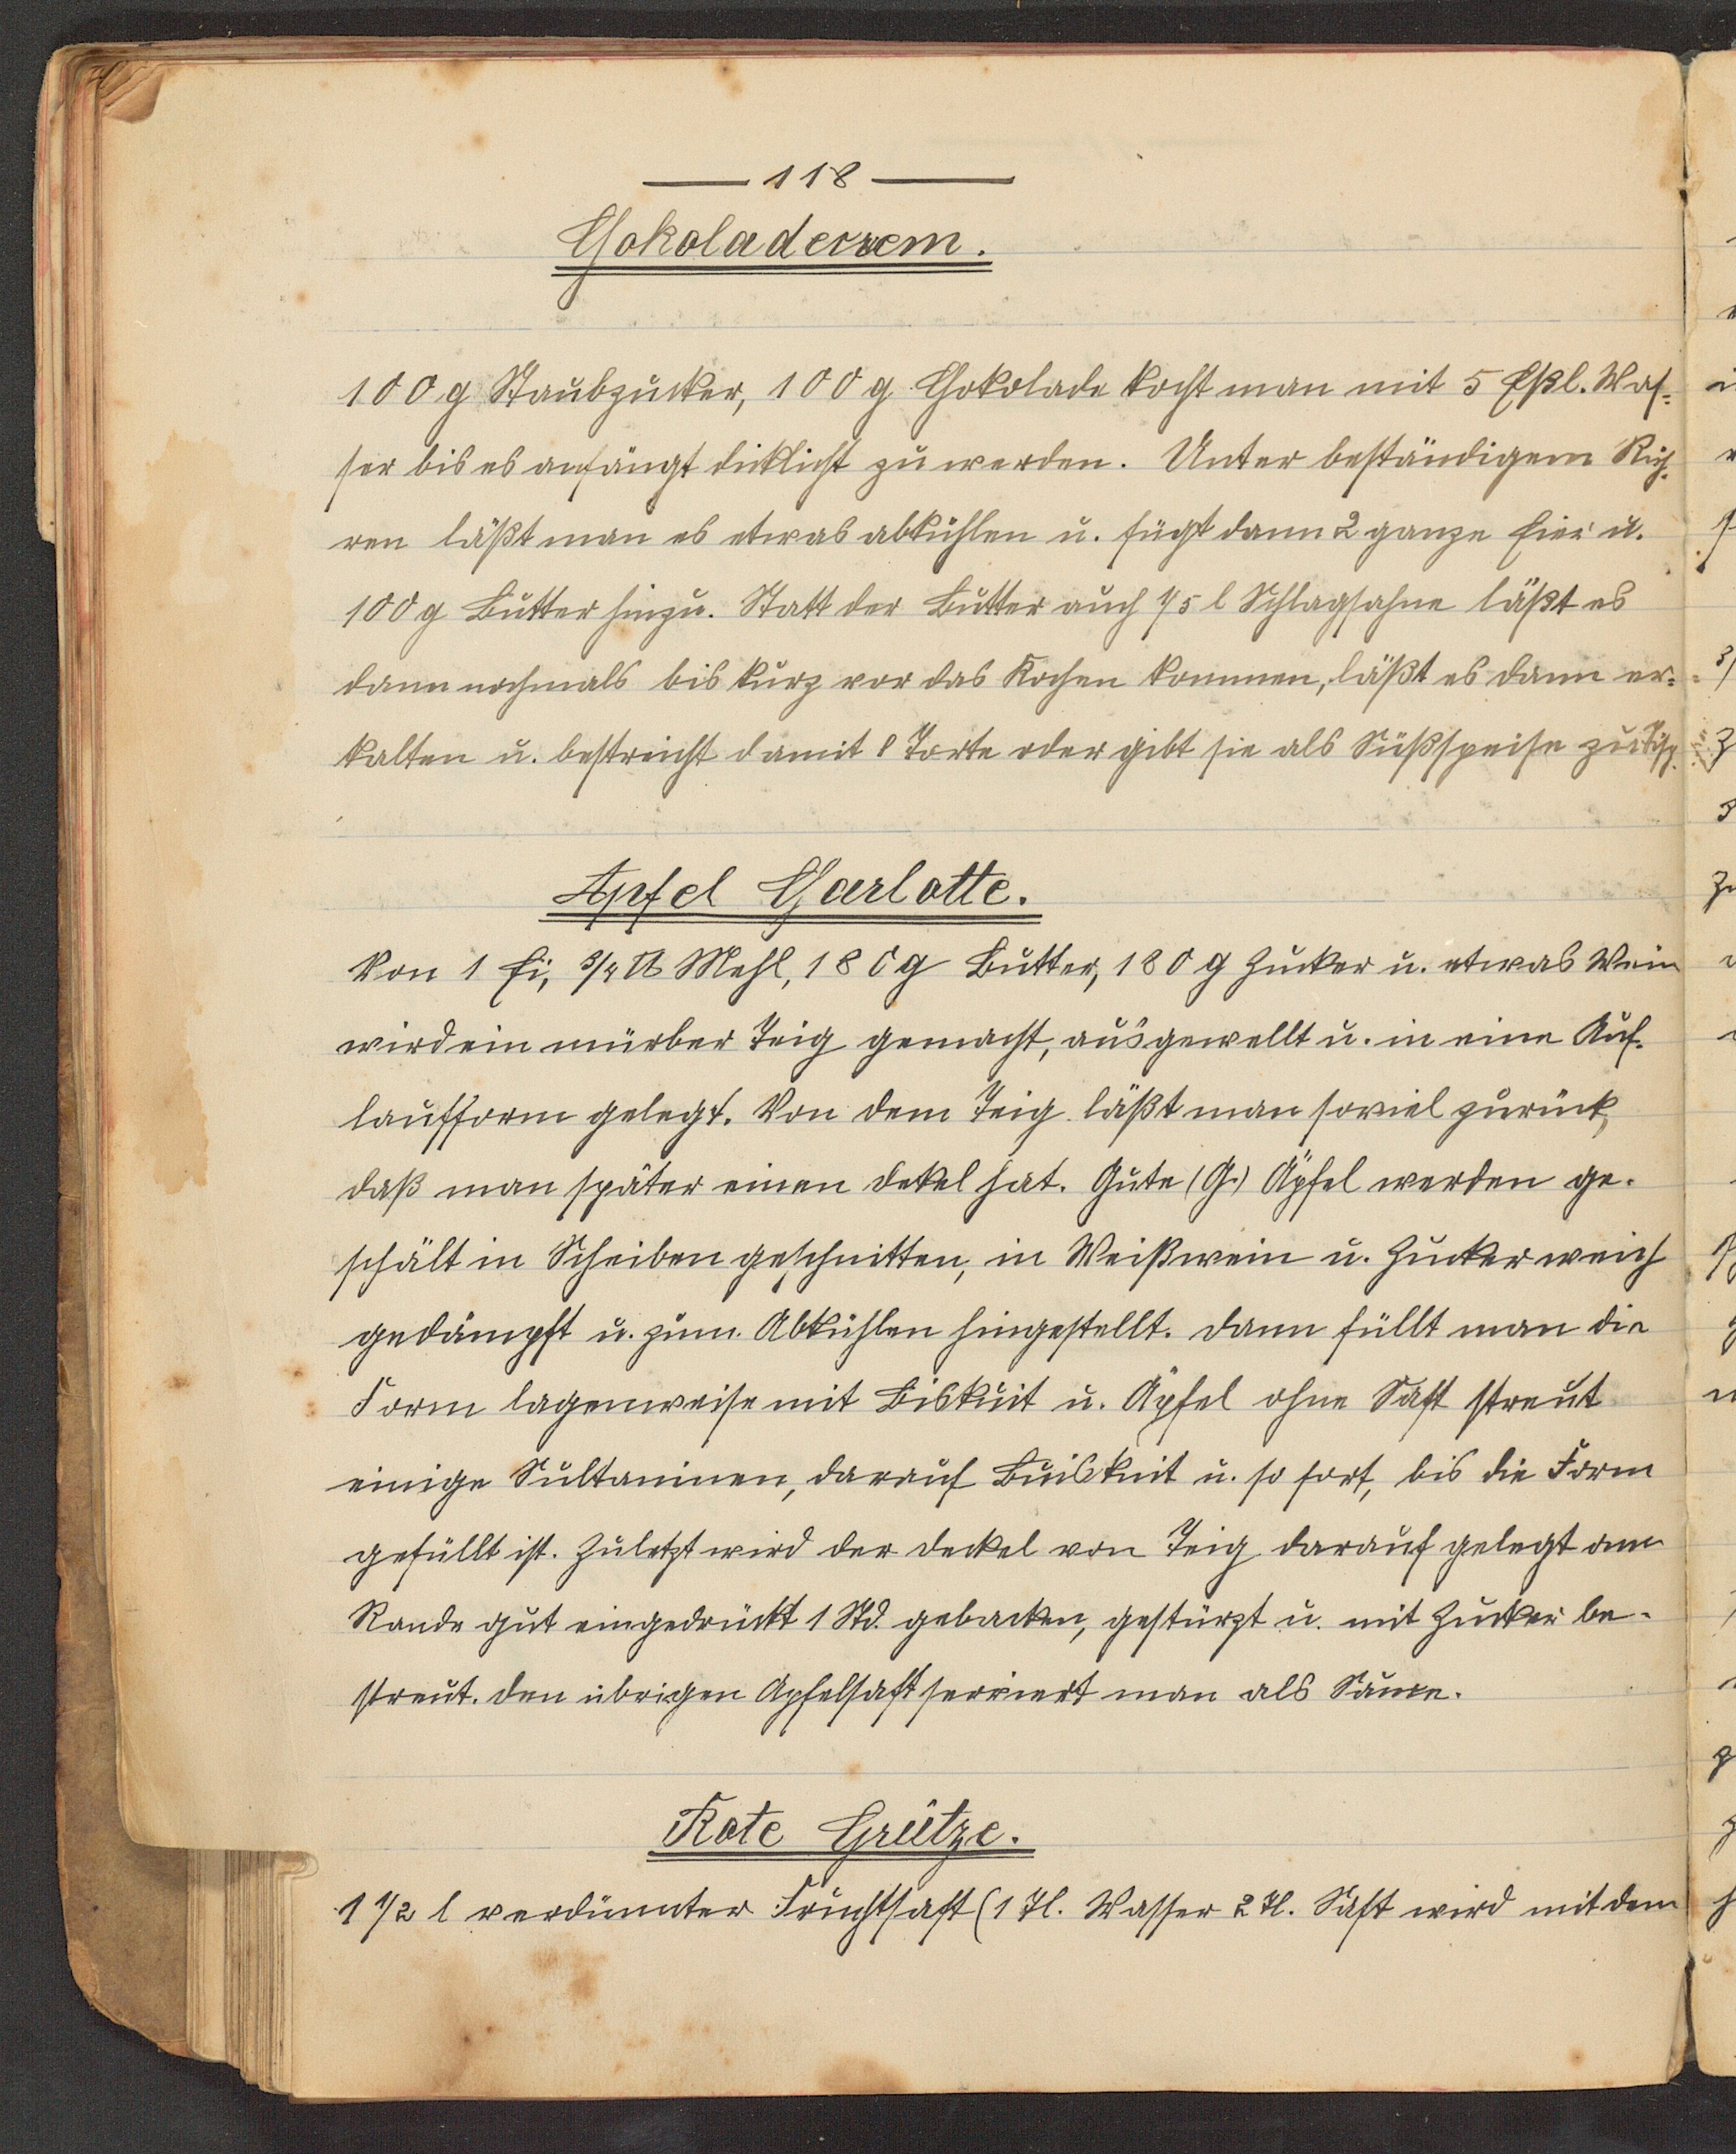 — 118 —
Chokoladecrem.
100 g Staubzucker, 100 g Chokolade kocht man mit 5 Eßl. Was=
ser bis es anfängt dicklicht zu werden. Unter beständigem Rüh=
ren läßt man es etwas abkühlen u. fügt dann 2 ganze Eier u.
100 g Butter hinzu. Statt der Butter auch 1/5 l Schlagsahne läßt es
dann nochmals bis kurz vor das Kochen kommen, läßt es dann er=
kalten u. bestreicht damit Torte oder gibt sie als Süßspeise zu Tisch.
Apfel Charlotte.
Von 1 Ei, 3/4 ℔ Mehl, 180 g Butter, 180 g Zucker u. etwas Wein
wird ein mürber Teig gemacht, ausgewellt u. in eine Auf=
laufform gelegt. Von dem Teig läßt man soviel zurück,
daß man später einen Dekel hat. Gute (G.) Äpfel werden ge=
schält in Scheiben geschnitten, in Weißwein u. Zucker weich
gedämpft u. zum Abkühlen hingestellt. Dann füllt man die
Form lagenweise mit Biskuit u. Äpfel ohne Saft streut
einige Sultaninen, darauf Buiskuit u. so fort, bis die Form
gefüllt ist. Zuletzt wird der Deckel von Teig darauf gelegt am
Rande gut eingedrückt 1 Std. gebacken, gestürzt u. mit Zucker be=
streut. Den übrigen Apfelsaft serviert man als Sauce.
Rote Grütze.
1 1/2 l verdünnter Fruchtsaft (1 Tl. Wasser 2 Tl. Saft wird mit dem